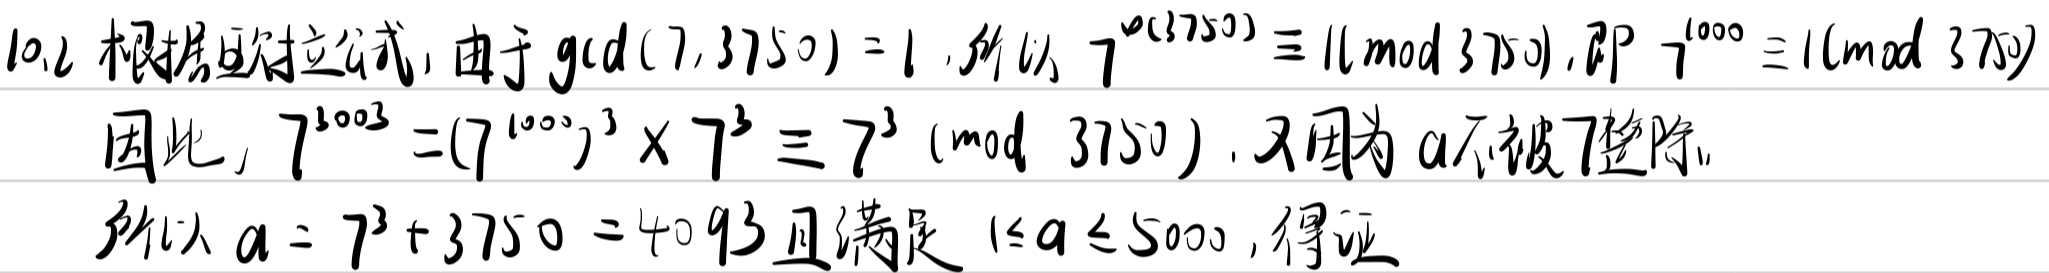 10.2 根据欧拉公式, 由于 gcd(7,3750)=1, 所以 7^φ(3750) ≡ 1(mod 3750), 即 7^1000 ≡ 1(mod 3750)
因此, 7^3003 =(7^1000)^3 × 7^3 ≡ 7^3 (mod 3750). 又因为 a不被7整除,
所以 a = 7^3+3750 = 4093 且满足 1≤a≤5000, 得证